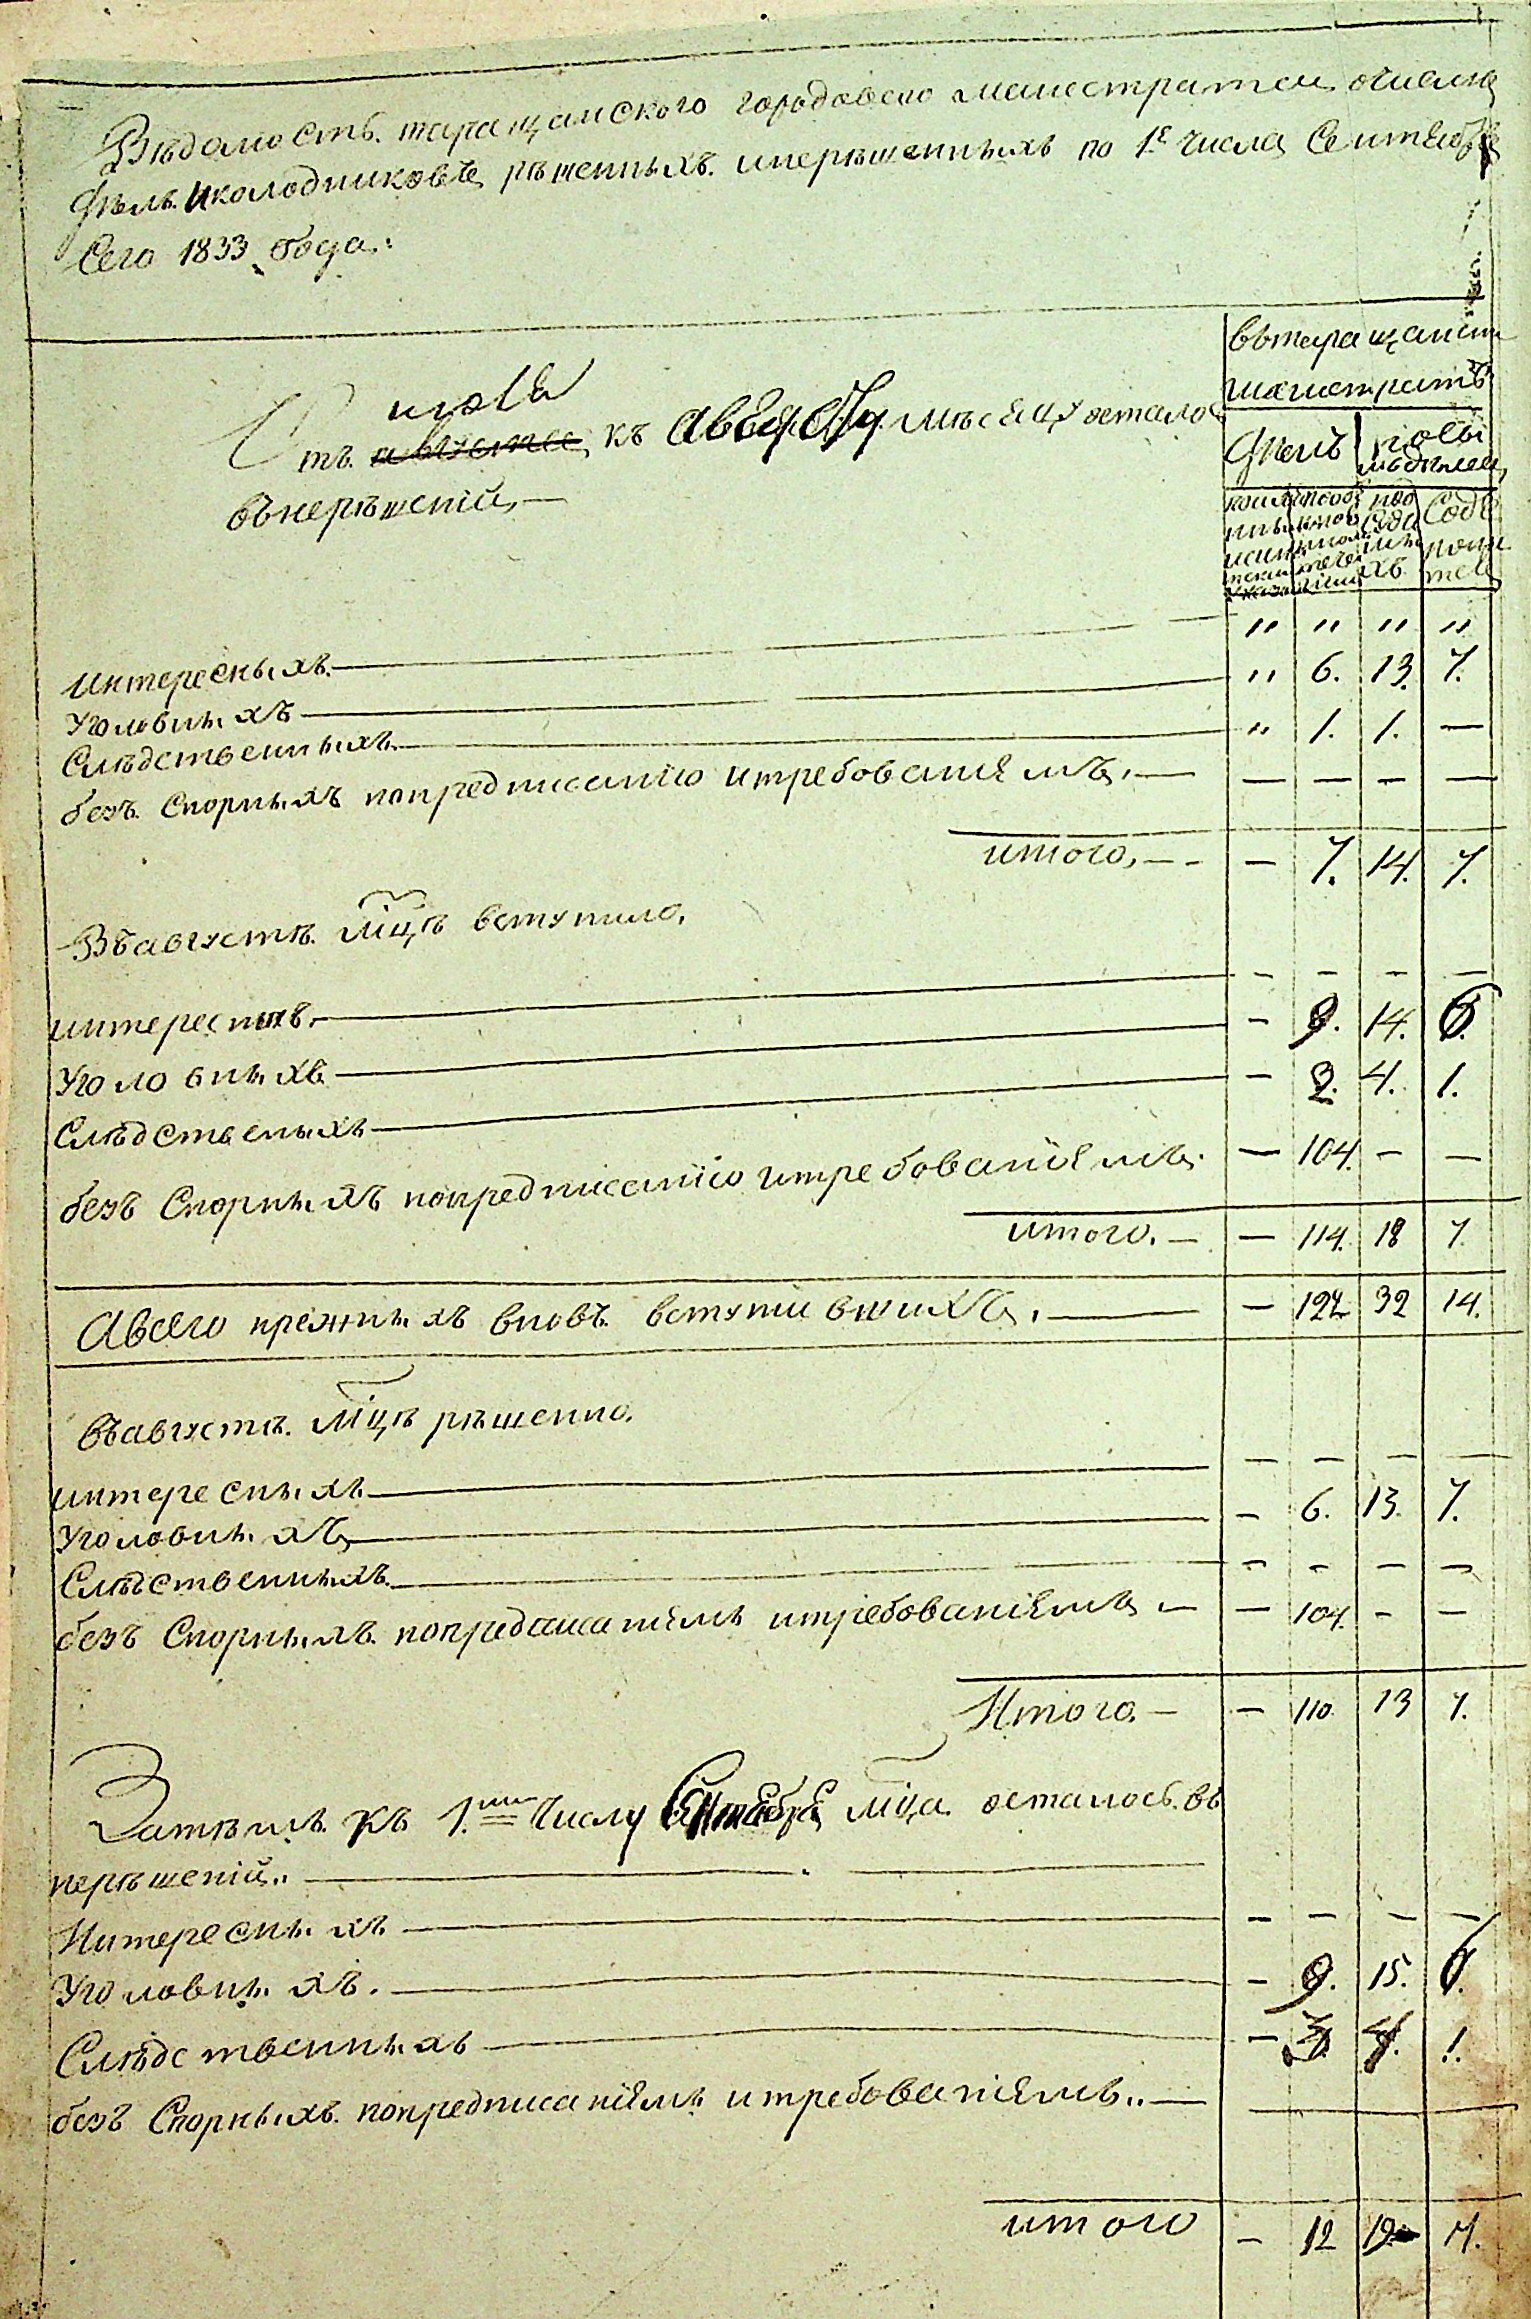 Вѣдомость таращанского городового магистрата о числѣ
дѣлъ и колодниковъ рѣшенныхъ и нерѣшенныхъ по 1е число Сентября
Сего 1833 Года:
вътаращанск
магистратѣ
июля
Отъ августа къ Августу мѣсяцу осталос
въ нерѣшеніи —
дѣлъ
под суди мы хъ
Содѣ
Интересныхъ — " " " "
Уголовныхъ — " 6. 13. 7.
Слѣдственныхъ — " 1. 1. —
безъ Спорныхъ попредписанію итребованіямъ. — — — — —
итого, — - — 7. 14. 7.
Въавгустѣ мцѣ вступило.
интересныхъ. — - - - —
Уголовныхъ — - 9. 14. 6.
Слѣдственыхъ — - 4. 1.
безъ Спорныхъ попредписанію итребованіямъ. — 104. — —
итого. — — 114. 18 7.
Авсего прежныхъ вновъ вступившихъ. — — 32 14.
въавгустѣ мцѣ рѣшенно.
интересныхъ — — — — —
Уголовныхъ — - 6. 13. 7.
Слѣдственныхъ. — - - - —
безъ Спорныхъ попредписаніямъ итребованіямъ — — 104. - —
Итого. — — 110. 13 7.
Затѣмъ къ 1.му числу Сентября мца осталось въ
нерѣшеніи.. —
Интересныхъ — — — — —
Уголовныхъ. — - 9. 15. 6.
Слѣдственныхъ — — 1.
безъ Спорныхъ попредписаніямъ итребованіямъ.. —
итого - 12 19